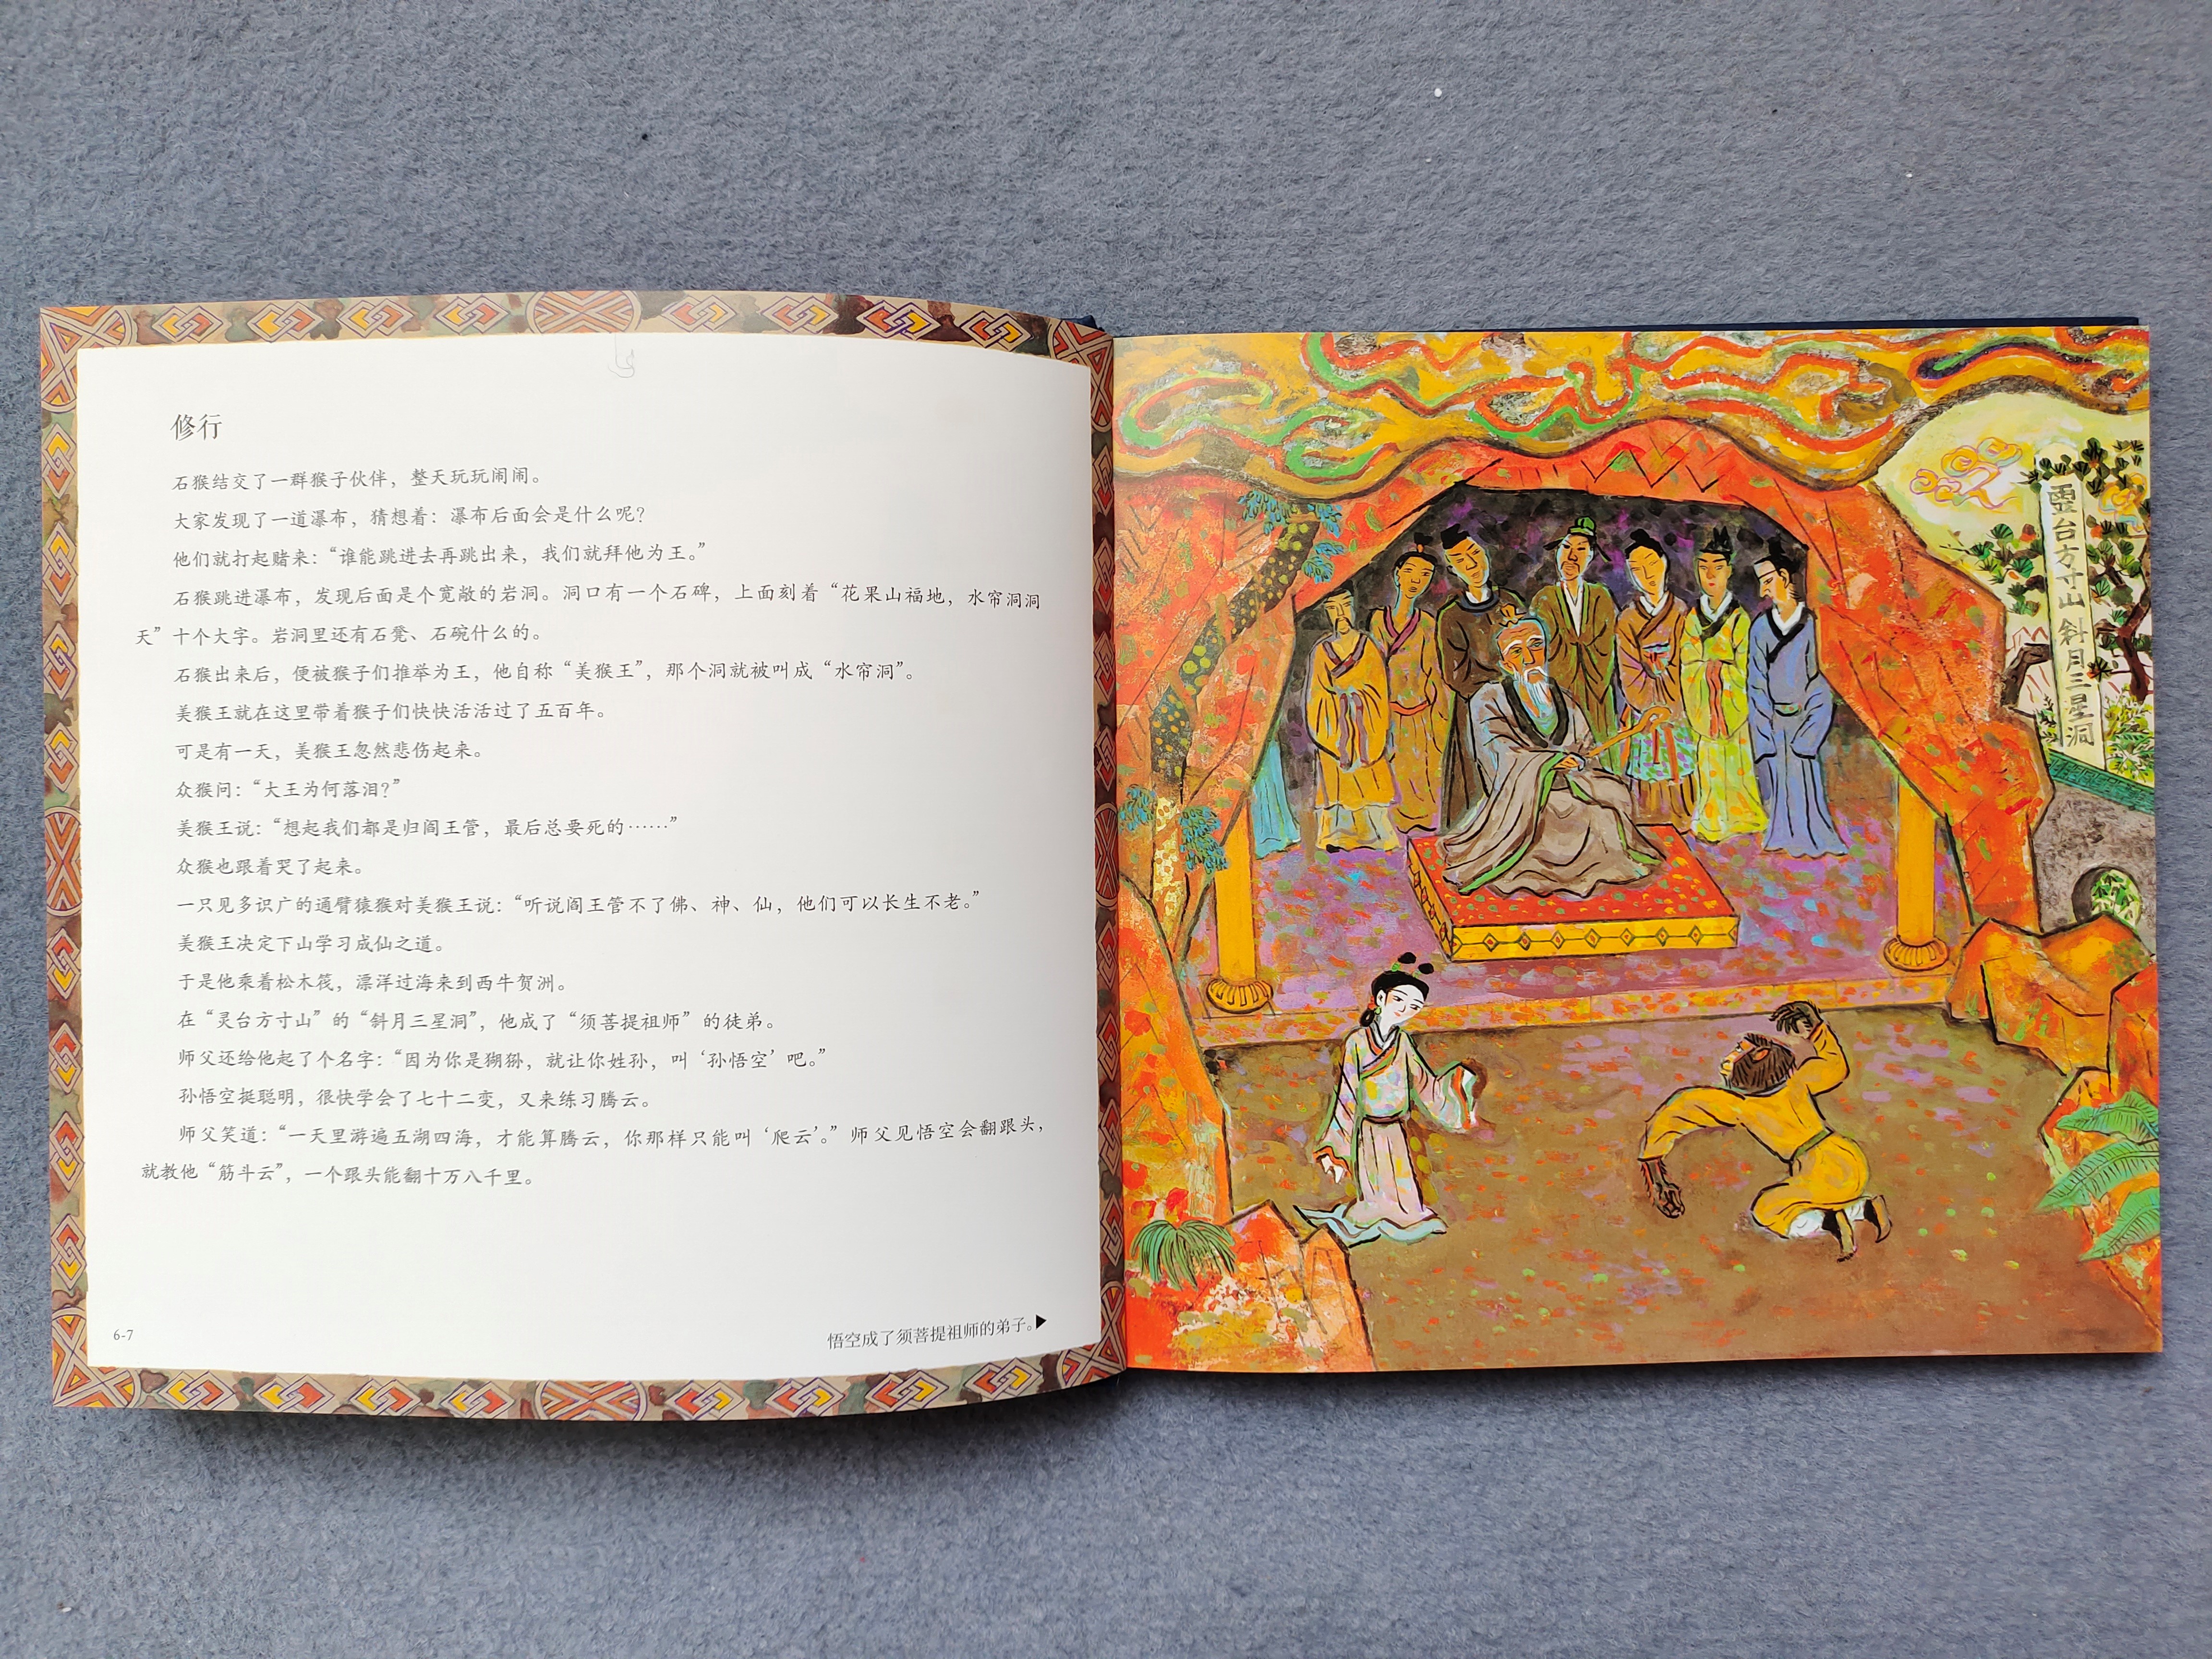 修行
石猴结交了一群猴子伙伴，整天玩玩闹闹。
大家发现了一道瀑布，猜想着：瀑布后面会是什么呢？
他们就打起赌来：“谁能跳进去再跳出来，我们就拜他为王。”
石猴跳进瀑布，发现后面是个宽敞的岩洞。洞口有一个石碑，上面刻着“花果山福地，水帘洞洞
天”十个大字。岩洞里还有石凳、石碗什么的。
石猴出来后，便被猴子们推举为王，他自称“美猴王”，那个洞就被叫成“水帘洞”。
美猴王就在这里带着猴子们快快活活过了五百年。
可是有一天，美猴王忽然悲伤起来。
众猴问：“大王为何落泪？”
美猴王说：“想起我们都是归阎王管，最后总要死的……”
众猴也跟着哭了起来。
一只见多识广的通臂猿猴对美猴王说：“听说阎王管不了佛、神、仙，他们可以长生不老。”
美猴王决定下山学习成仙之道。
于是他乘着松木筏，漂洋过海来到西牛贺洲。
在“灵台方寸山”的“斜月三星洞”，他成了“须菩提祖师”的徒弟。
师父还给他起了个名字：“因为你是猢狲，就让你姓孙，叫‘孙悟空’吧。”
孙悟空挺聪明，很快学会了七十二变，又来练习腾云。
师父笑道：“一天里游遍五湖四海，才能算腾云，你那样只能叫‘爬云’。”师父见悟空会翻跟头，
就教他“筋斗云”，一个跟头能翻十万八千里。
6-7
悟空成了须菩提祖师的弟子。▶
霊台方寸山斜月三星洞